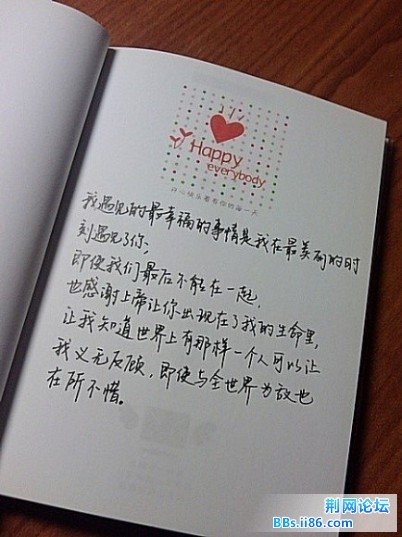 Happy
everybody
我遇见的最幸福的事情是我在最美丽的时
刻遇见了你,
即使我们最后不能在一起,
也感谢上帝让你出现在了我的生命里,
让我知道世界上有那样一个人可以让
我义无反顾,即使与全世界为敌也
在所不惜。
荆网论坛
BBs.ii86.com